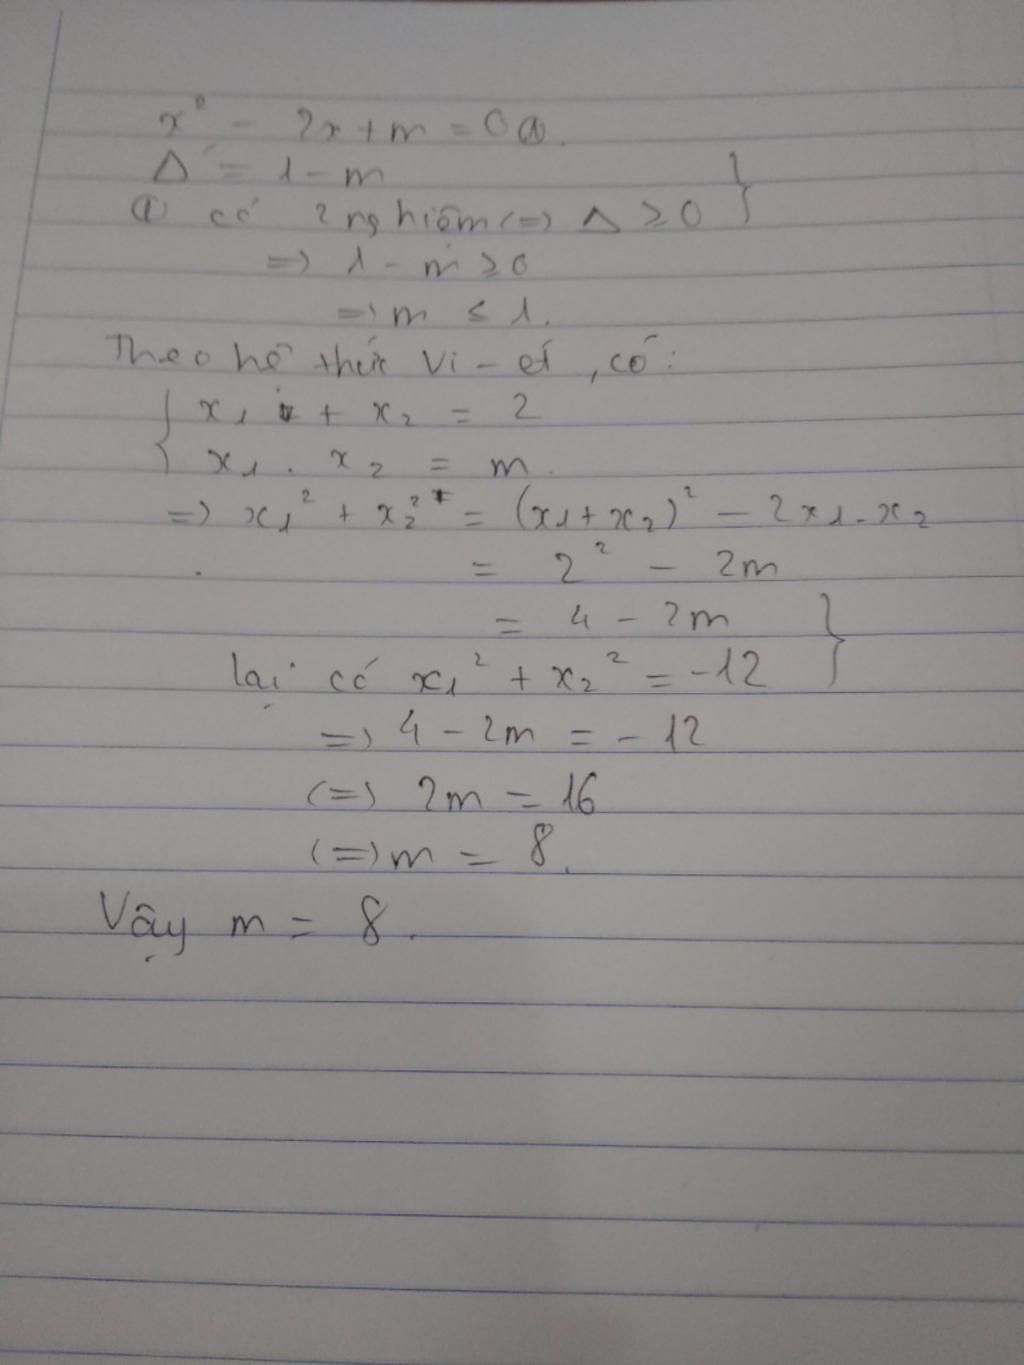 x² - 2x + m = 0 ①.
Δ' = 1 - m
① có 2 nghiệm (=) Δ ≥ 0 }
=) 1 - m ≥ 0
=) m ≤ 1.
Theo hệ thức Vi - ét, có:
{ x₁ + x₂ = 2
x₁ . x₂ = m.
=) x₁² + x₂² = (x₁ + x₂)² - 2x₁.x₂
= 2² - 2m
= 4 - 2m }
lại có x₁² + x₂² = -12
=) 4 - 2m = - 12
(=) 2m = 16
(=) m = 8.
Vậy m = 8.